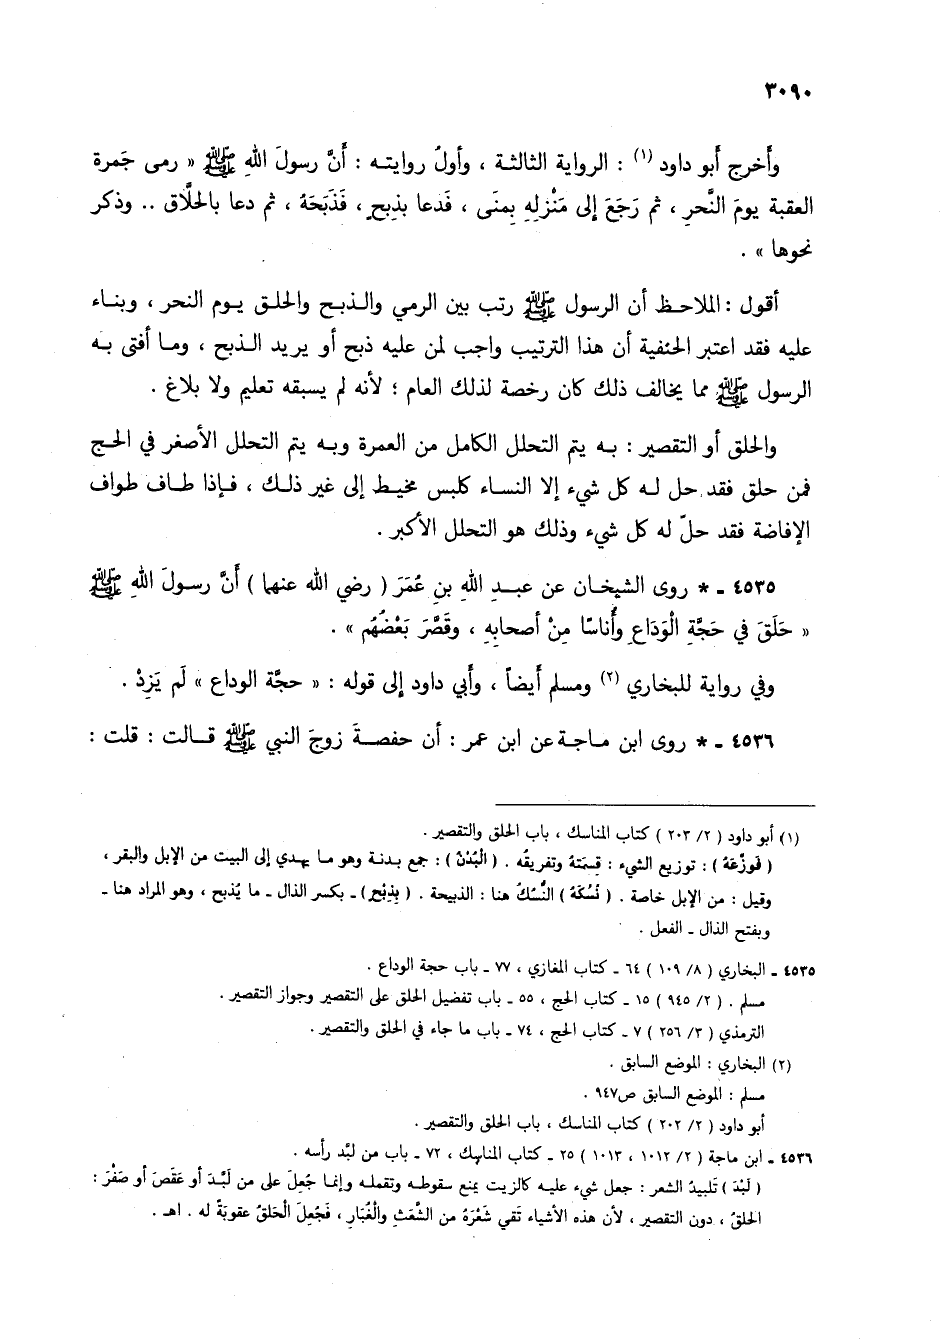 ٣٠٩٠
وأَخرج أبو داود (١) : الرواية الثالثة ، وأولُ روايتـه : أَنَّ رسولَ اللهِ ﷺ « رمى جَمرة
العقبة يومَ النَّحرِ ، ثم رَجَعَ إلى مَنْزلِهِ بِمنَى ، فَدعا بذِبحٍ ، فَذَبَحَهُ ، ثم دعا بالحلَّاق .. وذكر
نحوها » .
أقول : الملاحـظ أن الرسول ﷺ رتب بين الرمي والـذبح والحلـق يـوم النحر ، وبنـاء
عليه فقد اعتبر الحنفية أن هذا الترتيب واجب لمن عليه ذبح أو يريد الـذبح ، ومـا أفتى بـه
الرسول ﷺ مما يخالف ذلك كان رخصة لذلك العام ؛ لأنه لم يسبقه تعليم ولا بلاغ .
والحلق أو التقصير : بـه يتم التحلل الكامل من العمرة وبـه يتم التحلل الأصغر في الحـج
فمن حلق فقد حل لـه كل شيء إلا النسـاء كلبس مخيـط إلى غير ذلـك ، فـإذا طـاف طواف
الإفاضة فقد حلّ له كل شيء وذلك هو التحلل الأكبر .
٤٥٣٥ ـ * روى الشيخـان عن عبـدِ اللهِ بنِ عُمَرَ ( رضي الله عنهما ) أَنَّ رسـولَ اللهِ ﷺ
« حَلَقَ في حَجَّةِ الْوَدَاعِ وأُناسًا مِنْ أصحابِهِ ، وقَصَّرَ بَعْضُهُم » .
وفي رواية للبخاري (٢) ومسلم أَيضاً ، وأَبي داود إلى قوله : « حجَّة الوداع » لَم يَزِدْ .
٤٥٣٦ ـ * روى ابن مـاجـة عن ابن عمر : أن حفصـةَ زوجَ النبي ﷺ قـالت : قلت :
(١) أبو داود ( ٢/ ٢٠٣ ) كتاب المناسك ، باب الحلق والتقصير .
( فَوزَّعَهُ ) : توزيع الشيء : قِسمَتهُ وتفريقُه . ( الْبُدْنُ ) : جمع بدنة وهو مـا يهدي إلى البيت من الإبل والبقر ،
وقيل : من الإبل خاصة . ( نُسُكَهُ ) النُّسُكُ هنا : الذبيحة . ( بِذِبْحٍ ) ـ بكسر الذال ـ ما يُذبح ، وهو المراد هنا ـ
وبفتح الذال ـ الفعل .
٤٥٣٥ ـ البخاري ( ٨/ ١٠٩ ) ٦٤ ـ كتاب المغازي ، ٧٧ ـ باب حجة الوداع .
مسلم . ( ٢/ ٩٤٥ ) ١٥ ـ كتاب الحج ، ٥٥ ـ باب تفضيل الحلق على التقصير وجواز التقصير .
الترمذي ( ٣/ ٢٥٦ ) ٧ ـ كتاب الحج ، ٧٤ ـ باب ما جاء في الحلق والتقصير .
(٢) البخاري : الموضع السابق .
مسلم : الموضع السابق ص٩٤٧ .
أبو داود ( ٢/ ٢٠٢ ) كتاب المناسك ، باب الحلق والتقصير .
٤٥٣٦ ـ ابن ماجة ( ٢/ ١٠١٢ ، ١٠١٣ ) ٢٥ ـ كتاب المناسك ، ٧٢ ـ باب من لبَّد رأسه .
( لَبَّدَ ) تَلبيدُ الشعر : جعل شيء عليـه كالزيت يمنع سقوطـه وتقملـه وإنمـا جُعِلَ على من لَبَّـدَ أو عَقَصَ أو ضَفَرَ :
الحلقُ ، دون التقصير ، لأن هذه الأشياء تَقي شَعْرَهُ من الشَّعَثِ والْغُبَارِ ، فَجُعِلَ الْحَلقُ عقوبَةً له . اهـ .